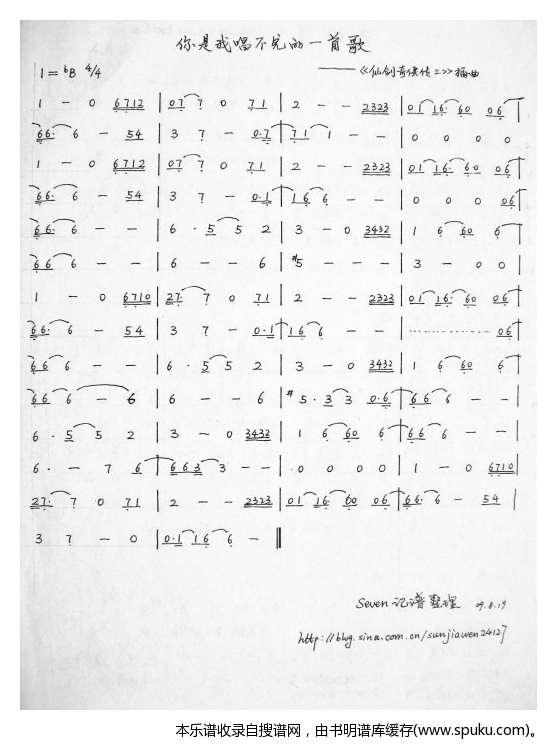 你是我唱不完的一首歌
1=ᵇB 4/4
——《仙剑奇侠传三》插曲
1 - 0 6712 | 07 7 0 71 | 2 - - 2323 | 01 16· 60 06 |
66· 6 - 54 | 3 7 - 0·7 | 71 1 - - | 0 0 0 0
1 - 0 6712 | 07 7 0 71 | 2 - - 2323 | 01 16· 60 06 |
66· 6 - 54 | 3 7 - 0·1 | 16 6 - - | 0 0 0 06 |
66· 6 - - | 6 · 5 5 2 | 3 - 0 3432 | 1 6 60 6 |
66 6 - - | 6 - - 6 | #5 - - - | 3 - 0 0 |
1 - 0 6710 | 27· 7 0 71 | 2 - - 2323 | 01 16· 60 06 |
66· 6 - 54 | 3 7 - 0·1 | 16 6 - - | ·················· 06 |
66 6 - - | 6 · 5 5 2 | 3 - 0 3432 | 1 6 60 6 |
66 6 - 6 | 6 - - 6 | #5 · 3 3 0·6 | 66 6 - - |
6 · 5 5 2 | 3 - 0 3432 | 1 6 60 6 | 66 6 - - |
6· - 7 6 | 663 3 - - | ·0 0 0 0 | 1 - 0 6710 |
27· 7 0 71 | 2 - - 2323 | 01 16· 60 06 | 66· 6 - 54 |
3 7 - 0 | 0·1 16 6 - ‖
Seven 记谱整理 09.8.19
http://blog.sina.com.cn/sunjiawen24127
本乐谱收录自搜谱网，由书明谱库缓存(www.spuku.com)。